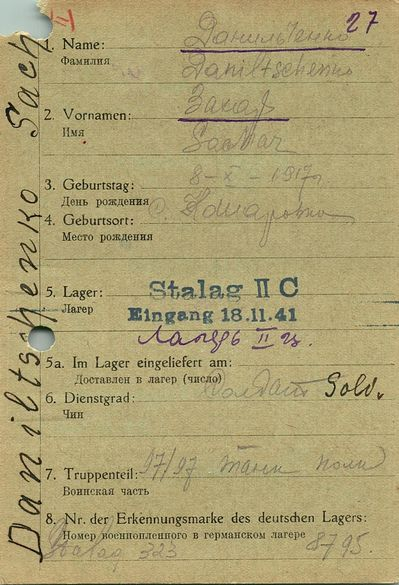 27
II
1. Name: Данильченко
Фамилия Daniltschenko
2. Vornamen: Захар
Имя Sachar
3. Geburtstag: 8-X-1917г
День рождения
4. Geburtsort: С.
Место рождения
5. Lager: Stalag II C
Лагер Eingang 18.11.41
Лагерь II ц.
5a. Im Lager eingeliefert am:
Доставлен в лагер (число)
6. Dienstgrad: Солдат Sold.
Чин
7. Truppenteil: 97/97 танк полк
Воинская часть
8. Nr. der Erkennungsmarke des deutschen Lagers:
Номер военнопленного в германском лагере
Stalag 323 8795.
Daniltschenko Sach